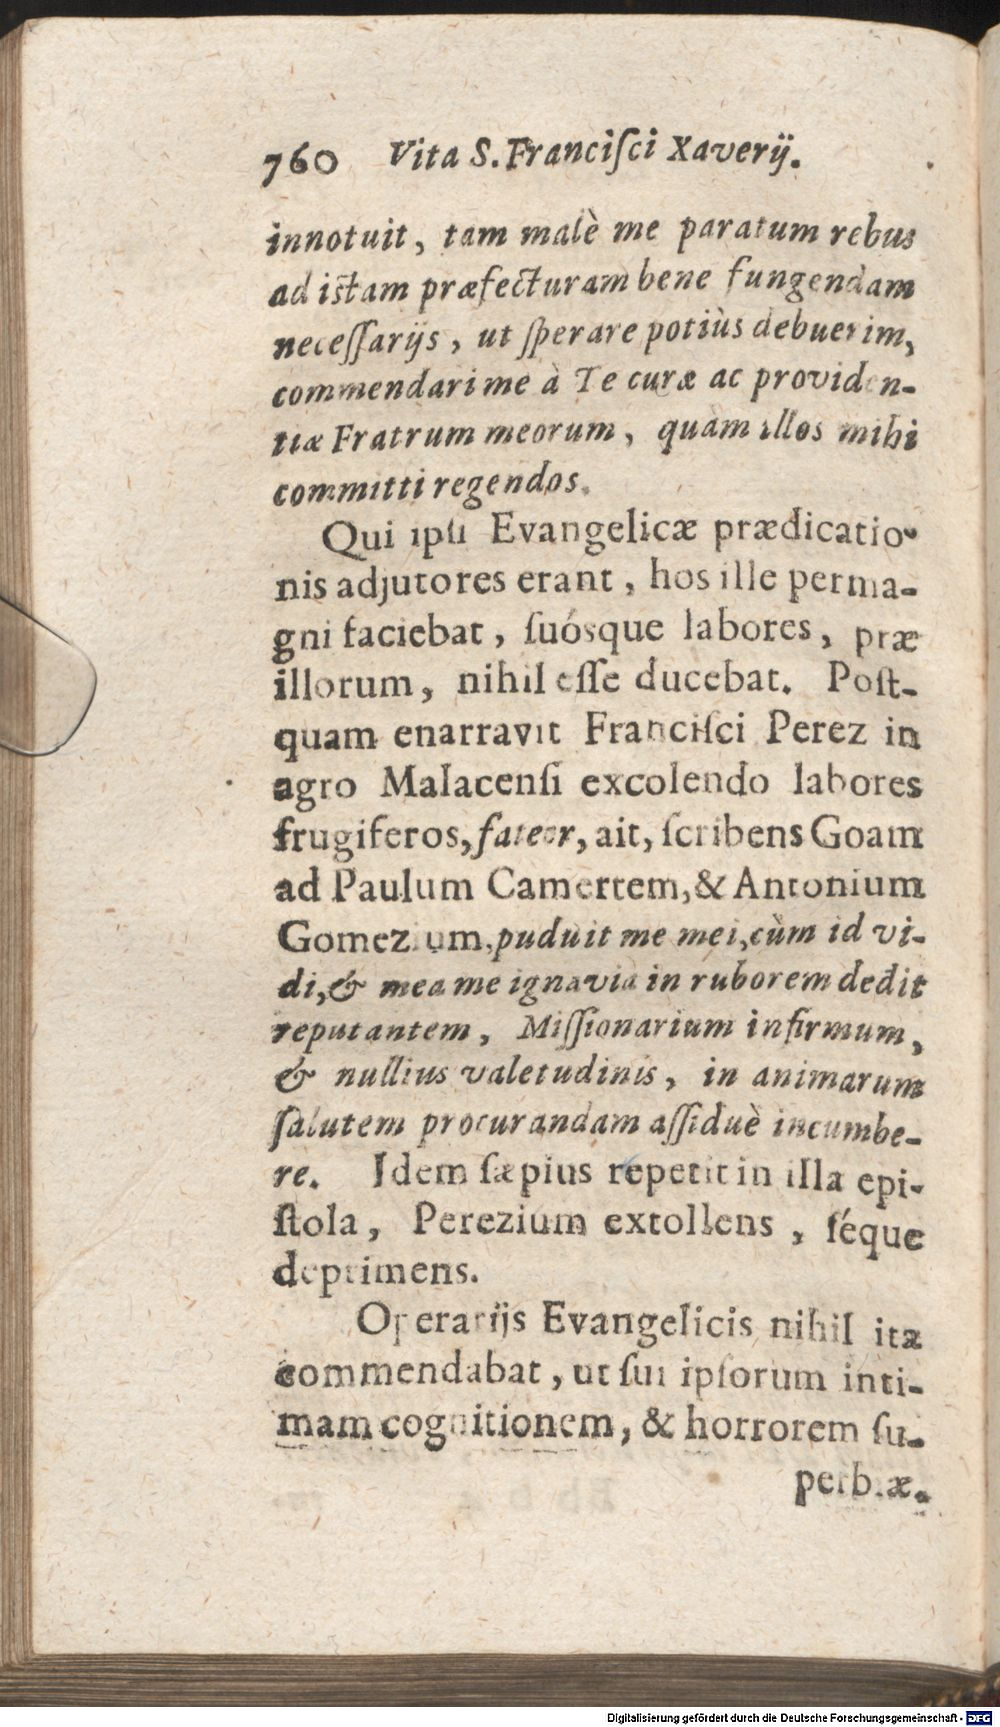 760 Vita S. Franciſci Xaverij.
innotuit, tam malè me paratum rebus
ad istam præfecturam bene fungendam
neceſſarijs, ut ſperare potiùs debuerim,
commendari me à Te curæ ac providen-
tiæ Fratrum meorum, quàm illos mihi
committi regendos.
Qui ipſi Evangelicæ prædicatio-
nis adjutores erant, hos ille perma-
gni faciebat, ſuósque labores, præ
illorum, nihil eſſe ducebat. Poſt-
quam enarravit Franciſci Perez in
agro Malacenſi excolendo labores
frugiferos, fateor, ait, ſcribens Goam
ad Paulum Camertem, & Antonium
Gomezium, puduit me mei, cùm id vi-
di, & mea me ignavia in ruborem dedit
reputantem, Miſſionarium infirmum,
& nullius valetudinis, in animarum
ſalutem procurandam aſſiduè incumbe-
re. Idem ſæpius repetit in illa epi-
ſtola, Perezium extollens, ſéque
deprimens.
Operarijs Evangelicis nihil ita
commendabat, ut ſui ipſorum inti-
mam cognitionem, & horrorem ſu-
perbiæ.
Digitalisierung gefördert durch die Deutsche Forschungsgemeinschaft - DFG